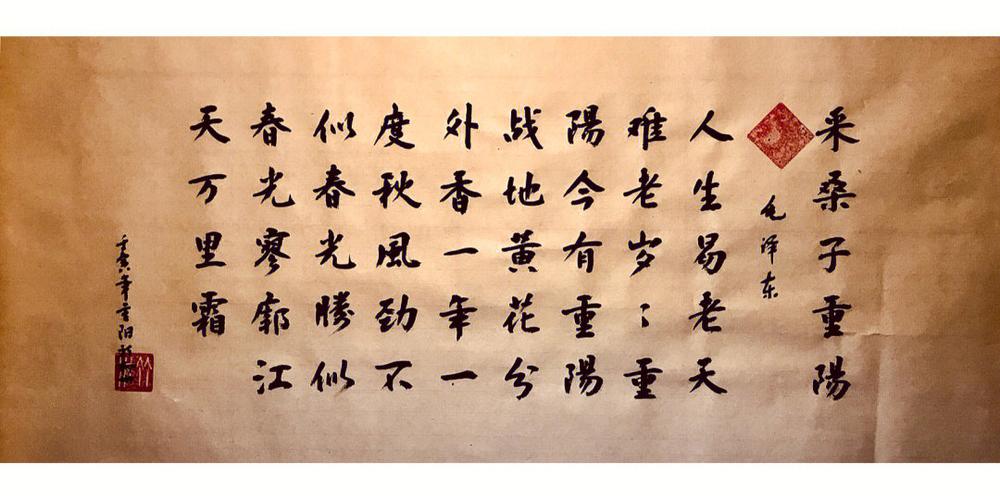 采桑子重陽
毛泽东
人生易老天
难老岁〻重
陽今有重陽
战地黄花分
外香一年一
度秋風劲不
似春光勝似
春光寥廓江
天万里霜
年重阳